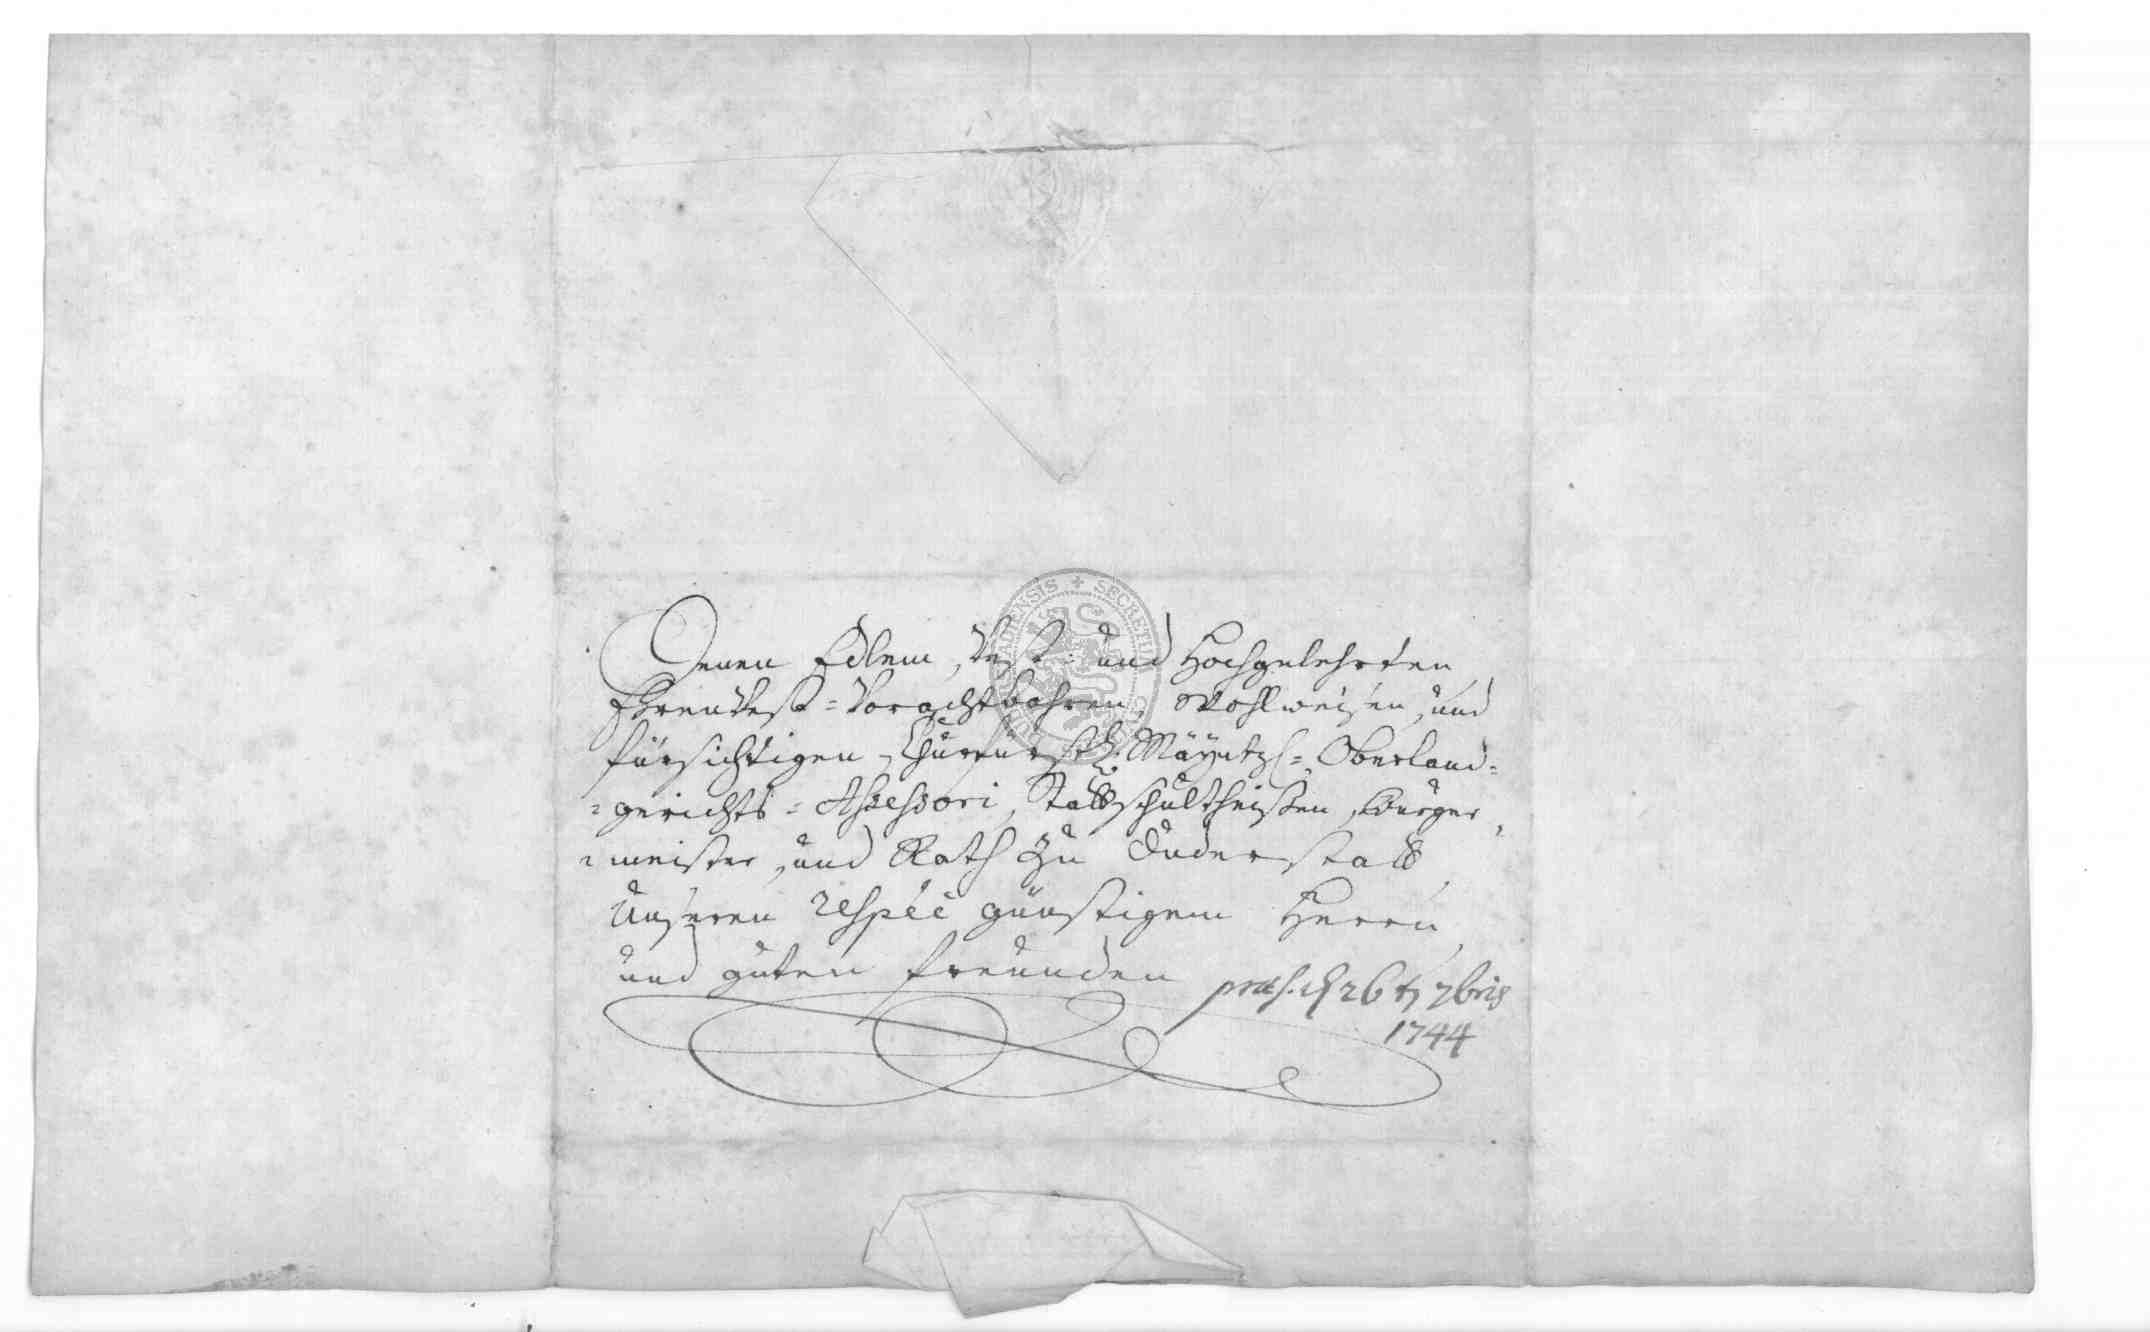 Denen Edlem, Vest- und Hochgelehrten
Ehrenvest- Vorachtbahren, Wohlweisen, und
fürsichtigen, Churfürstl: Mäyntzl=, Oberland=
=gerichts= Assessori, Stattschultheisßen, Bürger=
=meister, und Rath zu Duderstatt
Unseren respéé günstigem Herrn
und guten freunden
præs. d 26 t 7bris
1744
SECRETUM